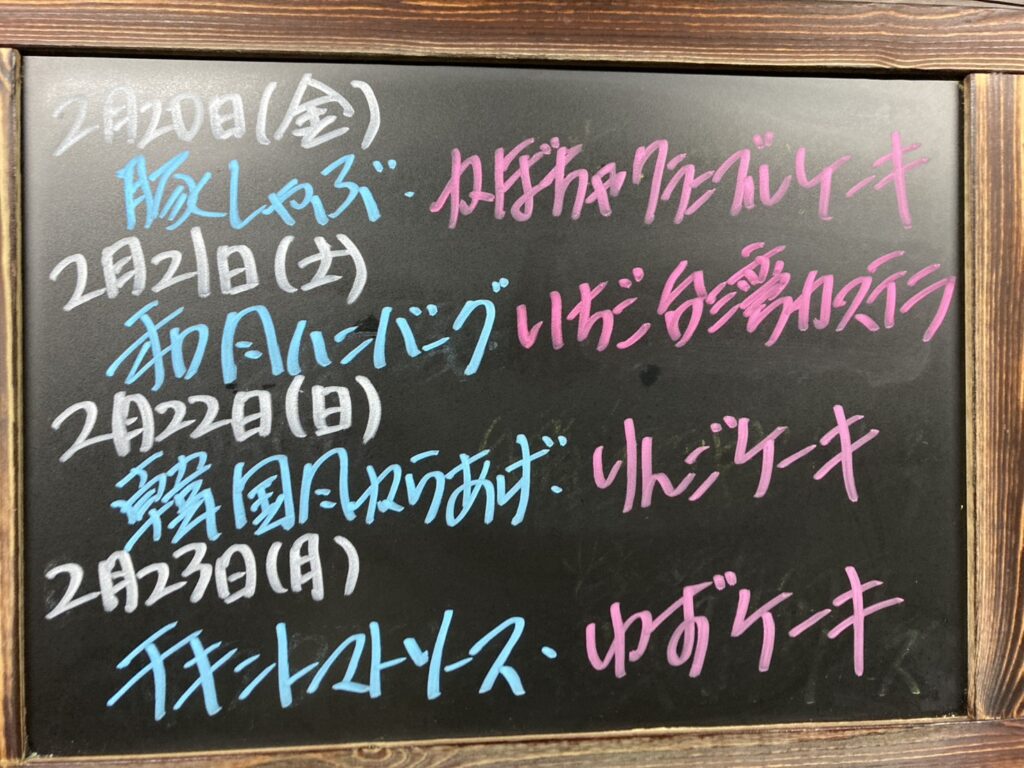 2月20日(金)
豚しゃぶ・かぼちゃクランブルケーキ
2月21日(土)
和風ハンバーグ いちご台湾カステラ
2月22日(日)
韓国風からあげ・りんごケーキ
2月23日(月)
チキントマトソース・ゆずケーキ